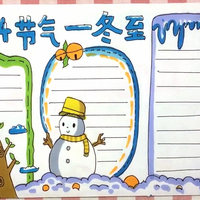 节气—冬至